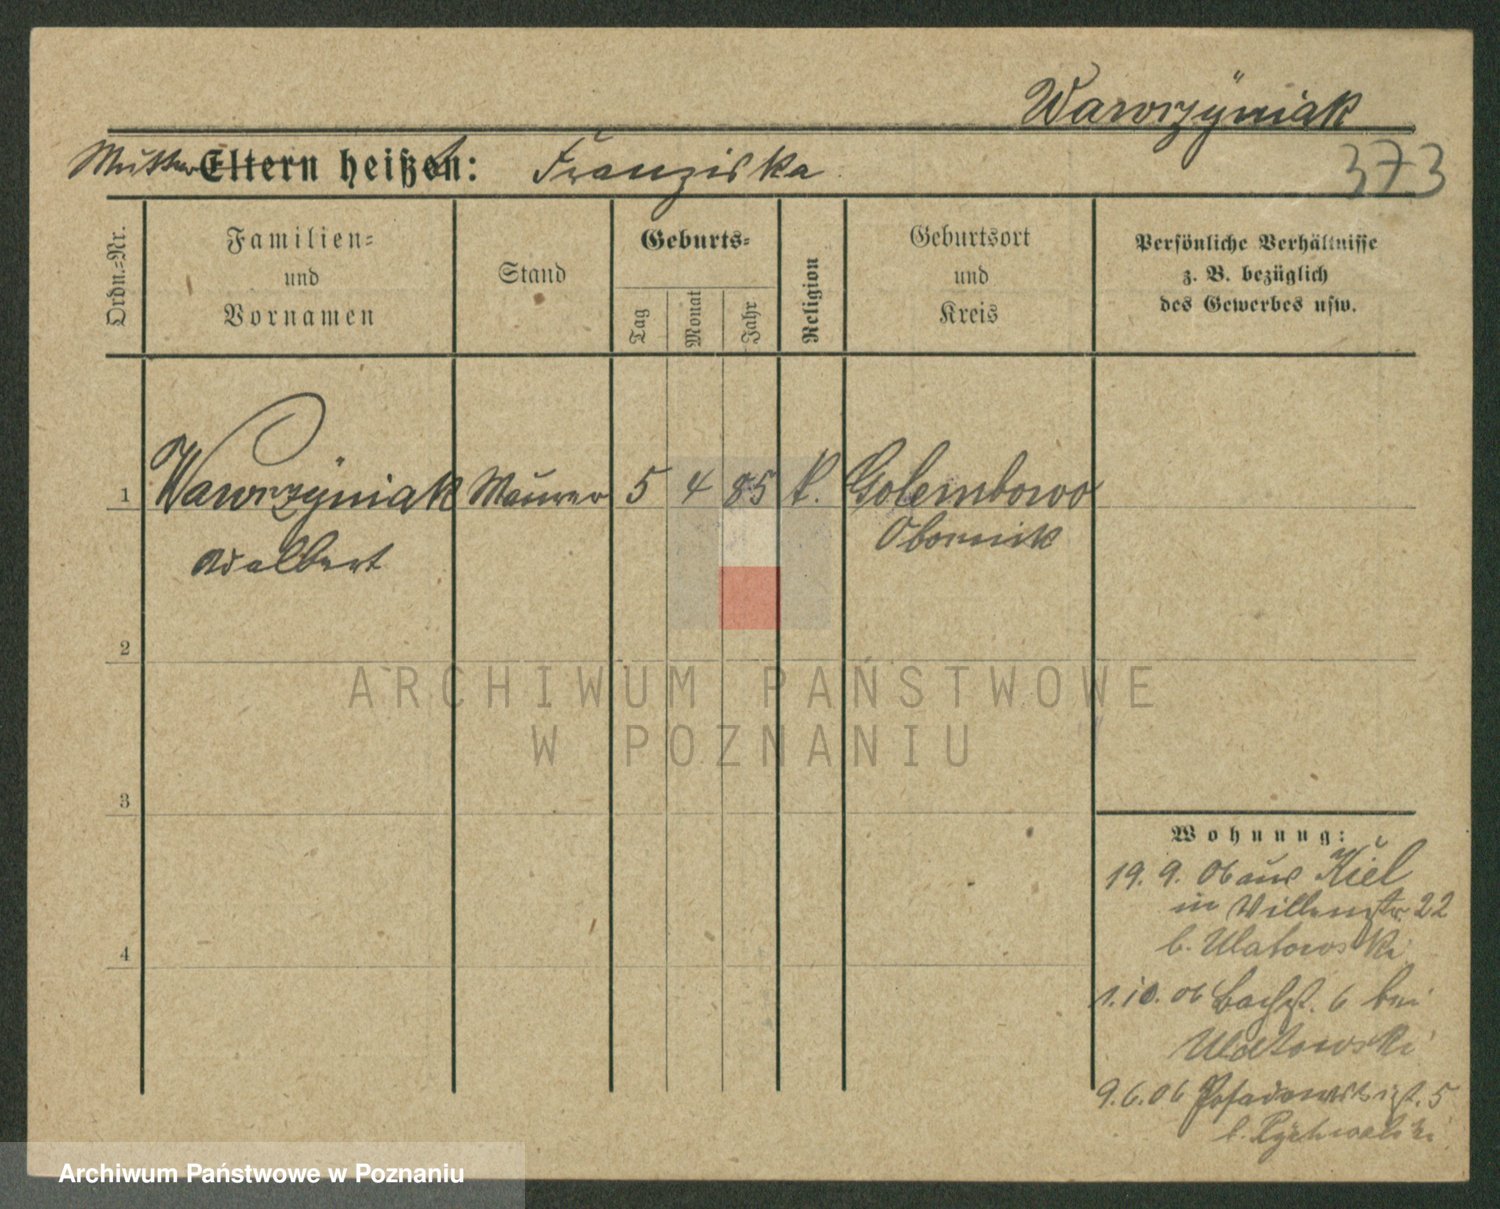 Wawrzÿniak
Mutter Eltern heißt:
Franziska
373
Ordn.-Nr.
Familien-
und
Vornamen
Stand
Geburts-
Tag
Monat
Jahr
Religion
Geburtsort
und
Kreis
Persönliche Verhältnisse
z. B. bezüglich
des Gewerbes usw.
1 Wawrzÿniak Maurer 5 4 85 k. Golembowo
Adalbert
Obornik
2
3
4
ARCHIWUM PAŃSTWOWE
W POZNANIU
Wohnung:
19. 9. 06 aus Kiel
in Villenstr. 22
b. Ulatowski
1. 10. 06 Bachst. 6 bei
Ulatowski
9. 6. 06 Posadowskist. 5
b. Rychwalski
Archiwum Państwowe w Poznaniu